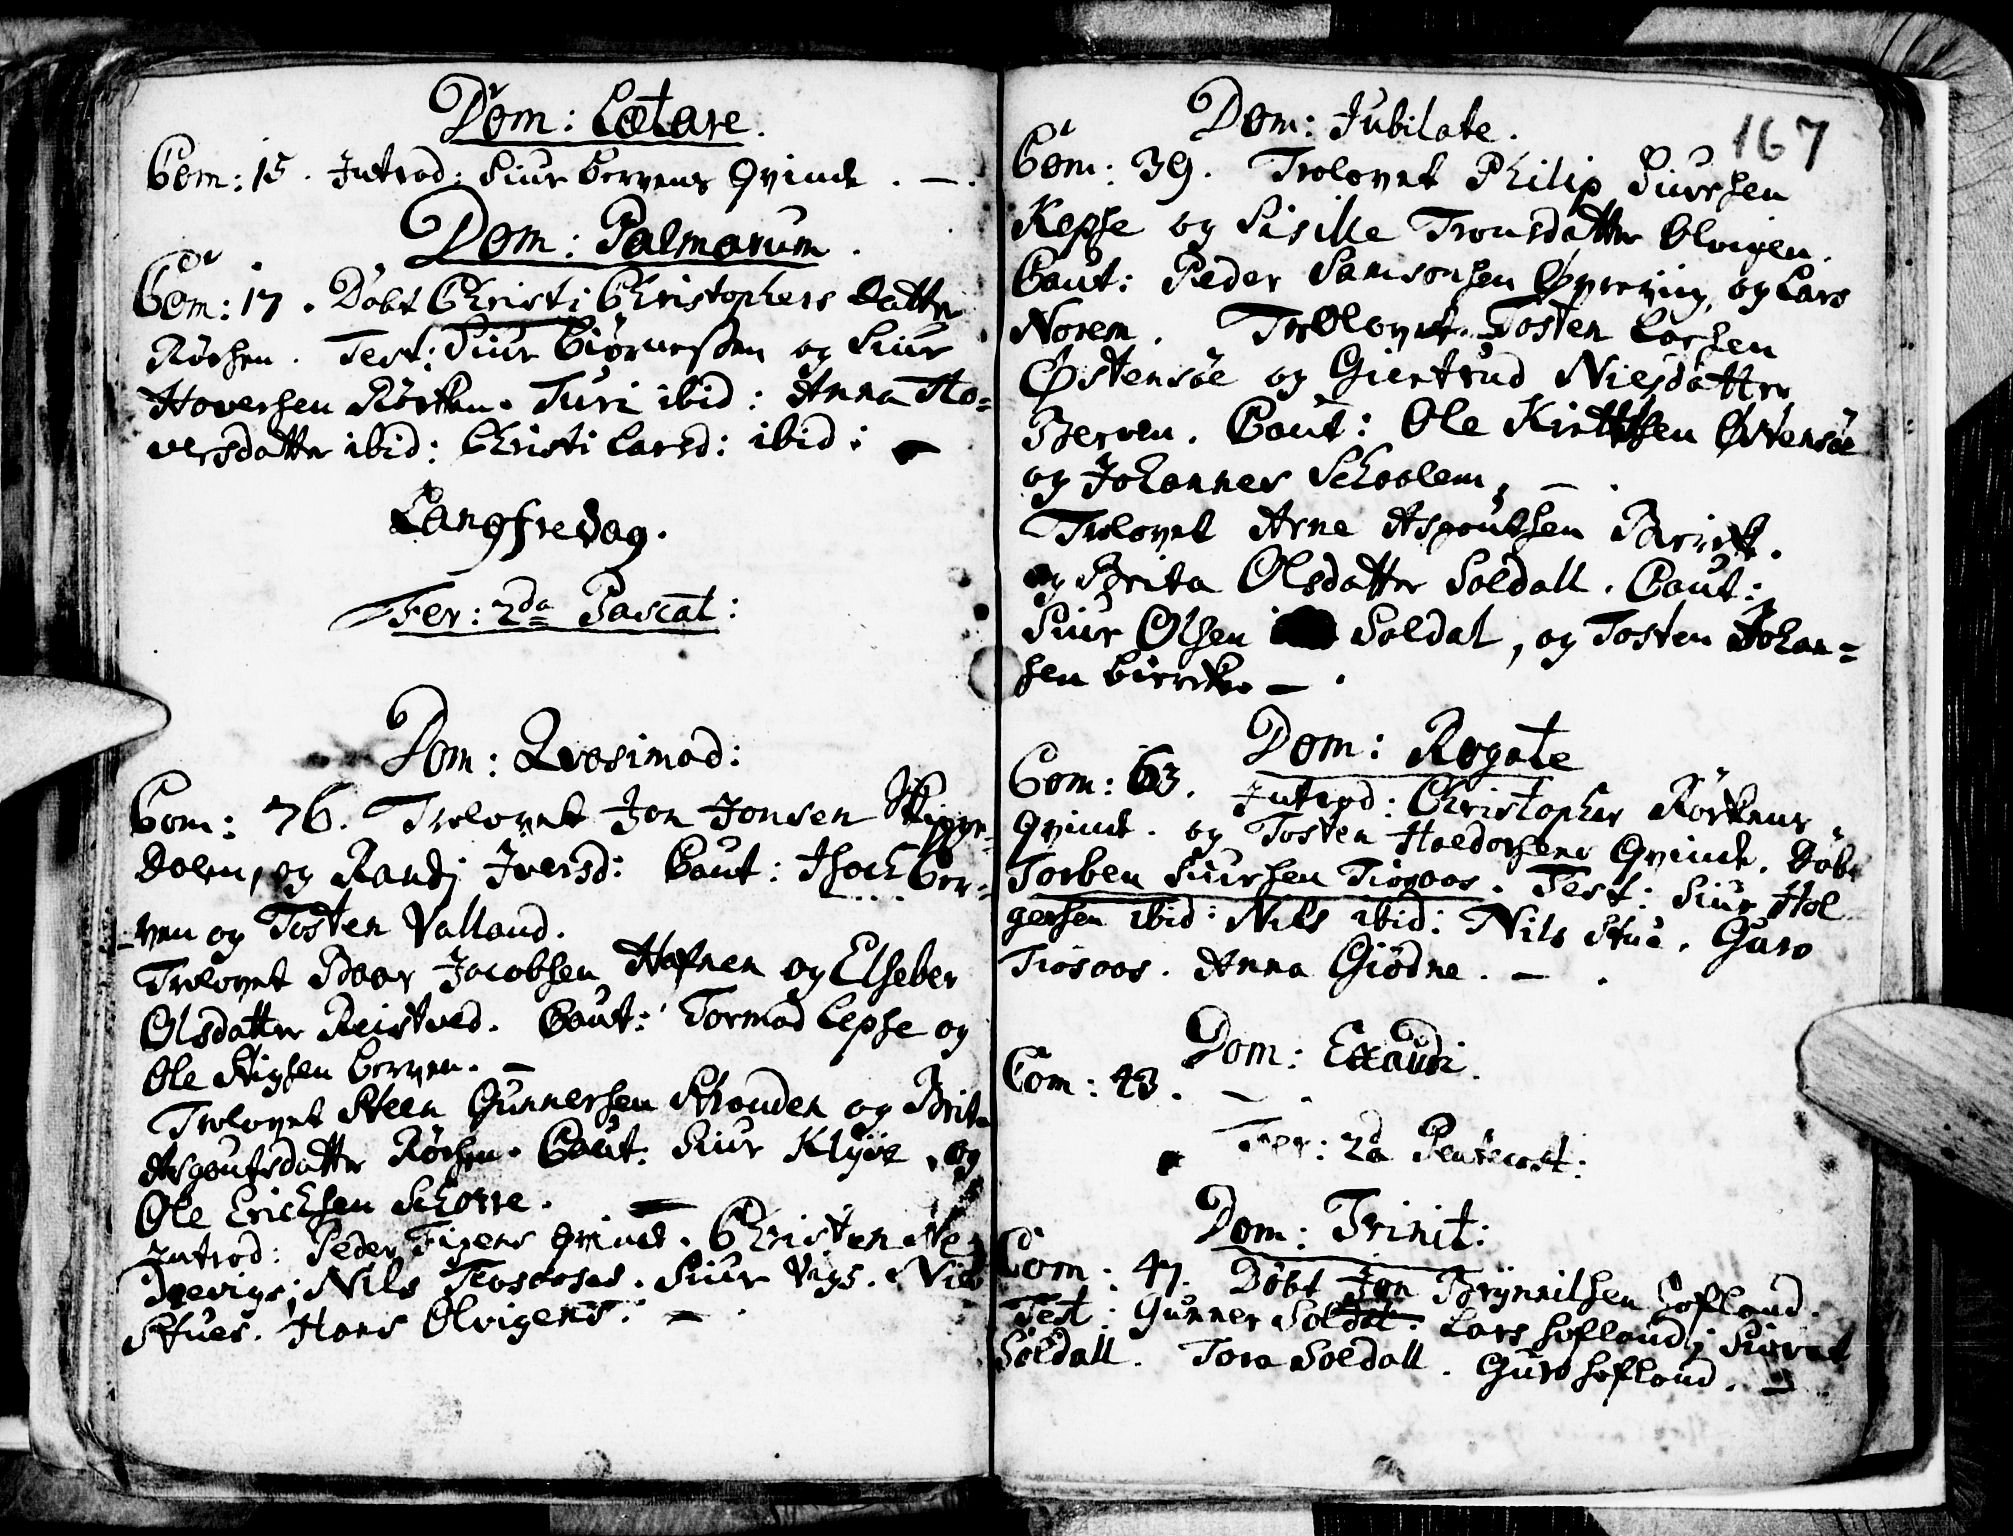 Dom: Lætare.
Com: 15. Introd: Siur Bervens Qvinde. —.
Dom: Palmarum.
Com: 17. Döbt Christi Christophers Datter
Rörchen. Test: Siur Biörnessen og Siur
Hoversen Rörcken. Turi ibid: Anna Ho=
versdatter ibid: Christi Larsd: ibid: —
Langfredag.
Fer: 2da Pascat:
Dom: Qvasimod:
Com: 76. Trolovet Jon Jonsen
Dalen, og Randj Iversd: Caut: Isach Ber=
ven og Tosten Valland.
Trolovet Baar Jacobsen Hafnen og Elseber
Olsdatter Reistved. Caut: Tormod Lepse og
Ole Stigsen Berven. —
Trolovet Steen Gunnersen Skouden og Brita
Asgoutsdatter Rörchen. Caut: Siur Klyve, og
Ole Erichsen Schorre. —
Introd: Peder Qvinde. Christen
Nils Tiosaases. Siur Vigs. Nils
Stues. Hans Olvigens. —
167
Dom: Jubilate.
Com: 39. Trolovet Philip Siursen
Kepse og Sisille Tronsdatter Olvigen.
Caut: Peder Samsonsen og Lars
Norem. Trolovet Tosten Larsen
Østensöe og Giertrud Nielsdatter
Berven. Caut: Ole Østensöe
og Johannes Schaalem. —.
Trolovet Arne Asgoutsen
og Brita Olsdatter Soldall. Caut:
Siur Olsen Soldal, og Tosten Johan=
sen —.
Dom: Rogate
Com: 63. Introd: Christopher Rörkens
Qvinde. og Tosten Haldorsens Qvinde. Döbt
Torben Siursen Tiosaas. Test: Siur Hol
gersen ibid: Nils ibid: Nils Stue. Guro
Tiosaas. Anna Giödne. —.
Dom: Exaudi.
Com: 43. —.
Fer: 2da Pentecost:
Dom: Trinit:
Com: 47. Döbt Jon Brynnilsen Sofland.
Test: Gunner Soldal. Lars Sofland; Siovat
Soldall. Tora Soldall. Guro Sofland. —